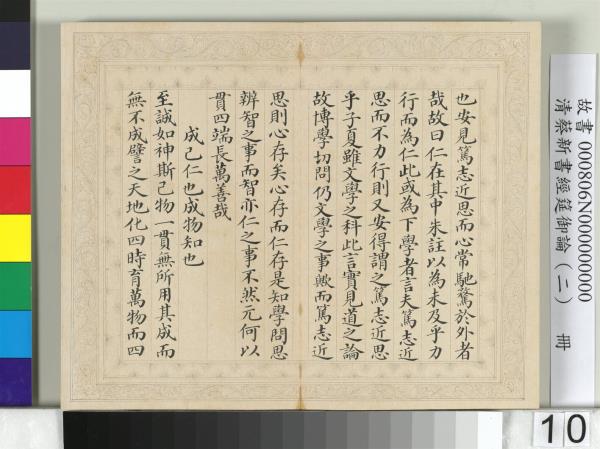 也安見篤志近思而心常馳騖於外者
哉故曰仁在其中朱註以為未及乎力
行而為仁此或為下學者言夫篤志近
思而不力行則又安得謂之篤志近思
乎子夏雖文學之科此言實見道之論
故博學切問仍文學之事歟而篤志近
思則心存矣心存而仁存是知學問思
辨智之事而智亦仁之事不然元何以
貫四端長萬善哉
成己仁也成物知也
至誠如神斯己物一貫無所用其成而
無不成譬之天地化四時育萬物而四
故書 000806N000000000
清蔡新書經筵御論（二） 冊
10